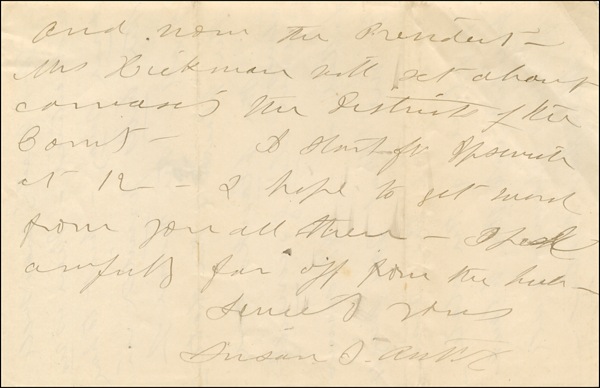 And now the President—
Mrs Hickman will set about
canvassing the Districts of the
County— I start for Ipswich
at 12— I hope to get word
from you all there— I feel
awfully far off from the hub—
Sincerely yours
Susan B. Anthony